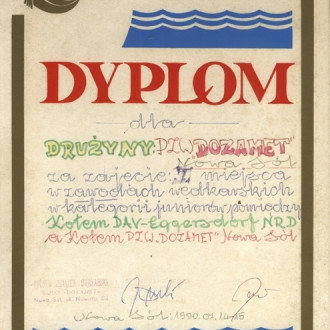 DYPLOM
dla
DRUŻYNY P.I.W. "DOZAMET"
Nowa Sól
za zajęcie I miejsca
w zawodach wędkarskich
w kategorii juniorów pomiędzy
Kołem DAV-Eggersdorf NRD
a Kołem P.I.W. "DOZAMET" Nowa Sól
Nowa Sól: 1990.07.14-15